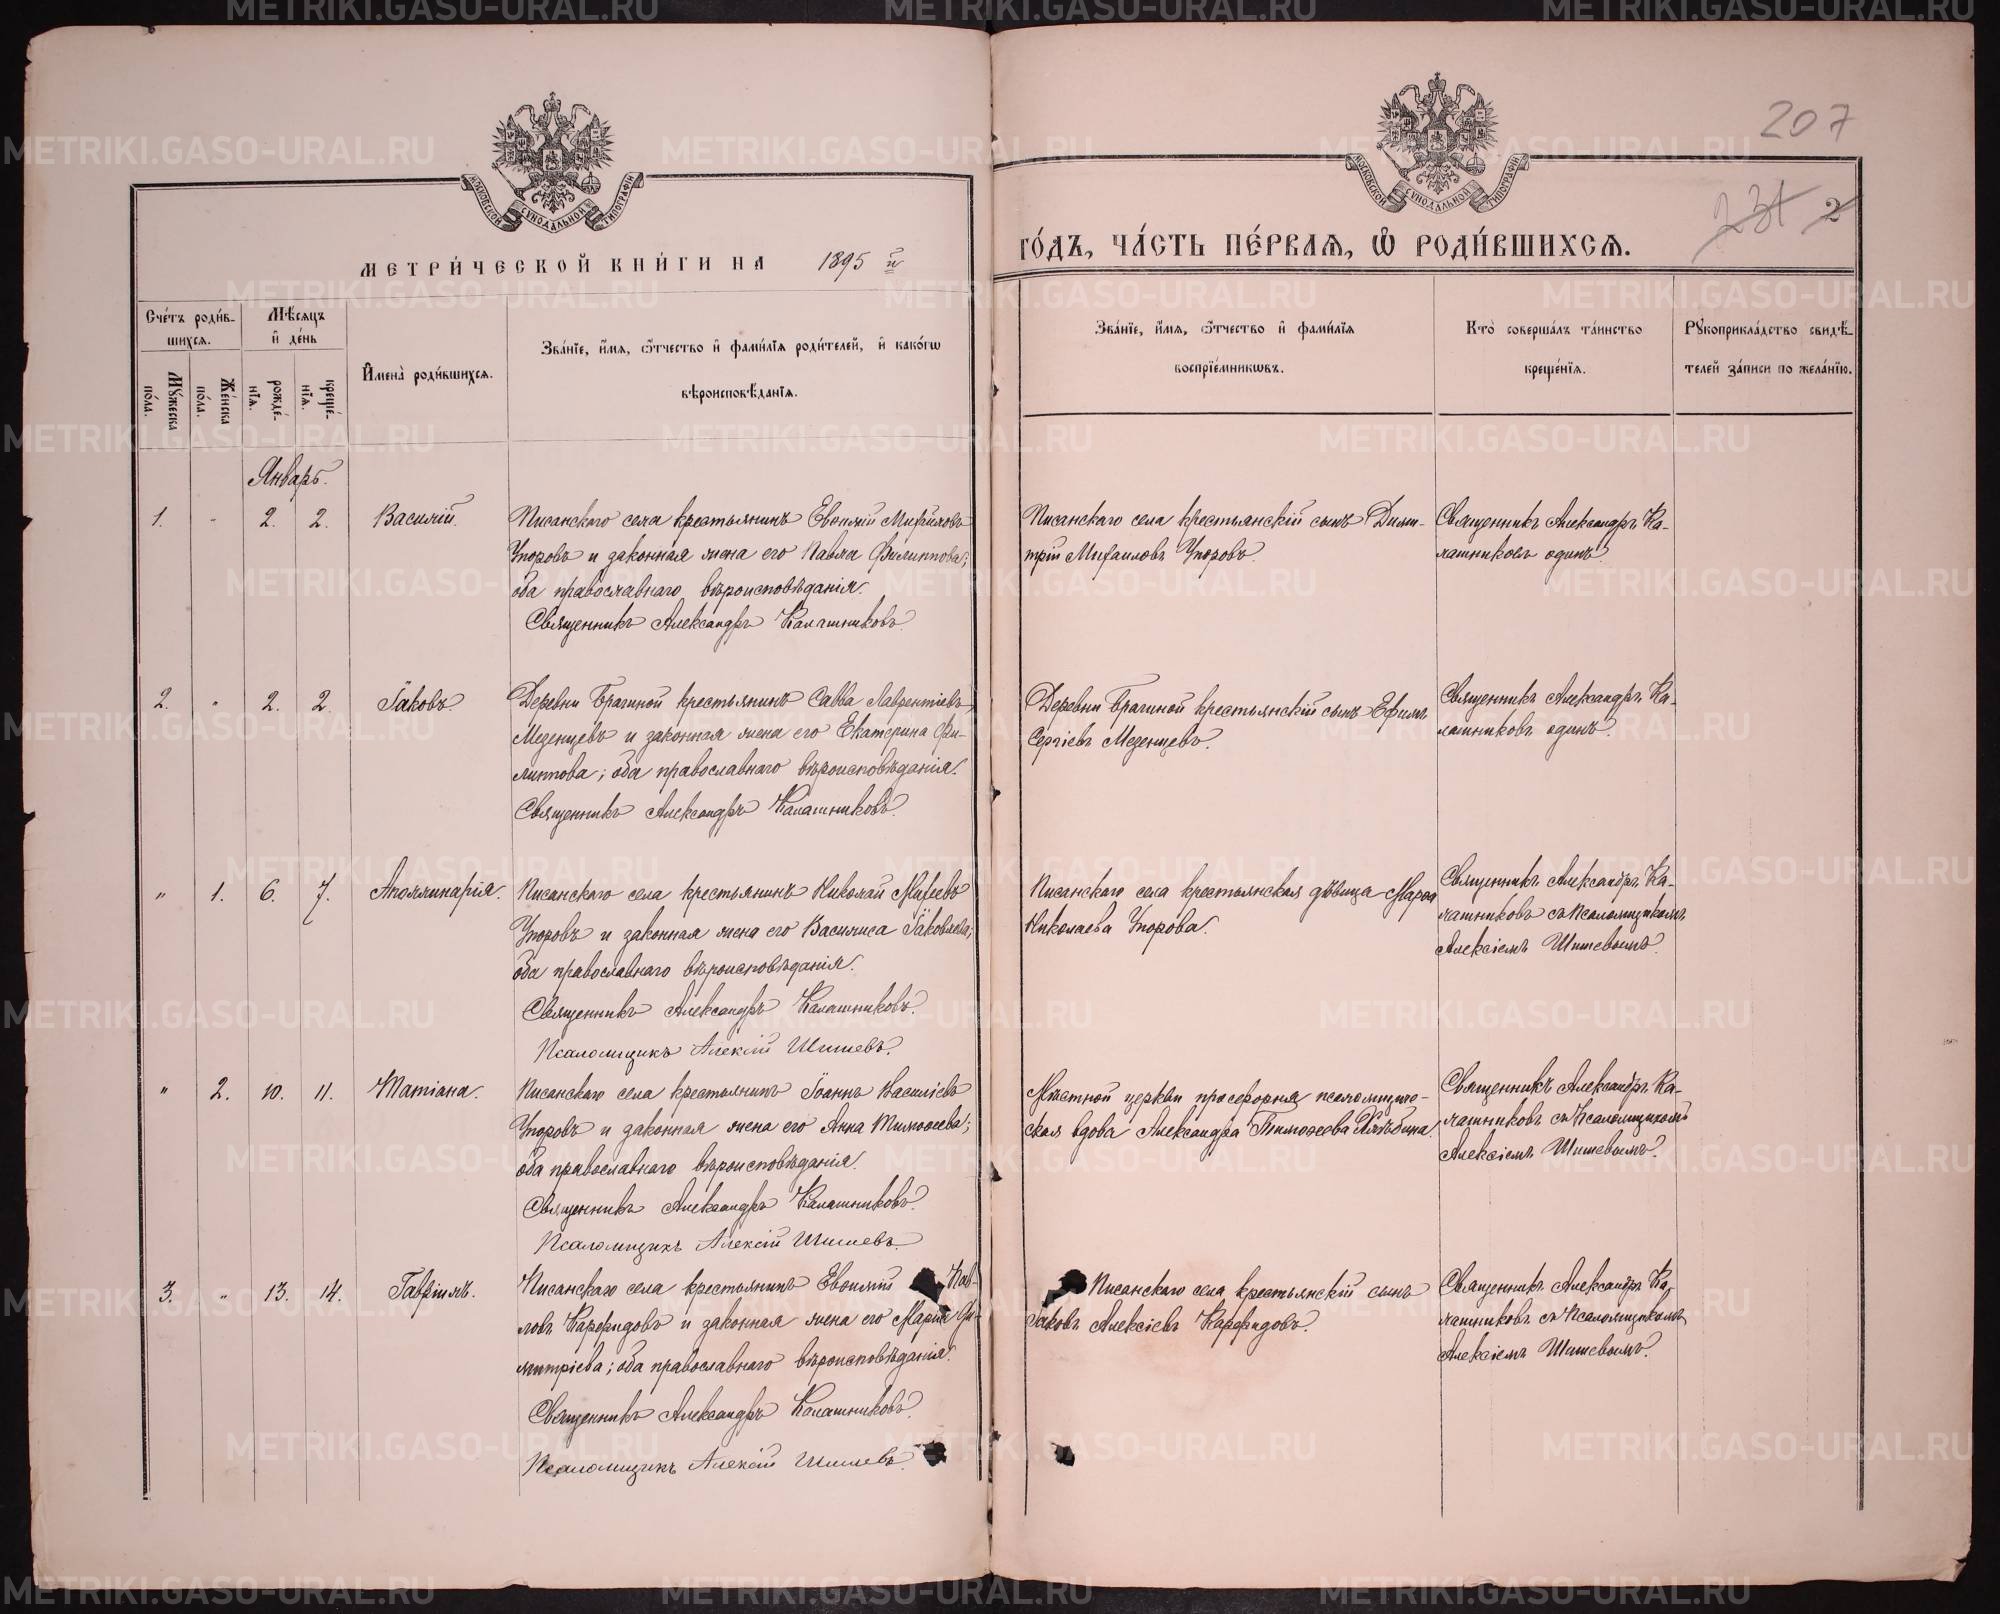 207
231 2
МОСКОВСКОЙ СУНОДАЛЬНОЙ ТИПОГРАФІИ
МОСКОВСКОЙ СУНОДАЛЬНОЙ ТИПОГРАФІИ
МЕТРИ́ЧЕСКОЙ КНИ́ГИ НА 1895 й
ГО́ДЪ, ЧА́СТЬ ПЕ́РВАѦ, Ѡ҆ РОДИ́ВШИХСѦ.
Сче́тъ роди́в-
шихсѧ.
Мѣ́сѧцъ
и҆ де́нь
Мꙋ́жеска
по́ла.
Же́нска
по́ла.
рожде́-
нїѧ.
креще́-
нїѧ.
И҆мена̀ роди́вшихсѧ.
Зва́нїе, и҆́мѧ, ѻ҆́тчество и҆ фами́лїѧ роди́телей, и҆ како́гѡ
вѣроисповѣ́данїѧ.
Зва́нїе, и҆́мѧ, ѻ҆́тчество и҆ фами́лїѧ
воспрїе́мникѡвъ.
Кто̀ соверша́лъ та́инство
креще́нїѧ.
Рꙋкоприкла́дство свидѣ́-
телей за́писи по жела́нїю.
Январь.
1. " 2. 2. Василій.
Писанскаго села крестьянинъ Евѳимій Михаиловъ
Упоровъ и законная жена его Павла Филиппова;
оба православнаго вѣроисповѣданія.
Священникъ Александръ Калашниковъ.
Писанскаго села крестьянскій сынъ Дими-
трій Михаиловъ Упоровъ.
Священникъ Александръ Ка-
лашниковъ одинъ.
2. " 2. 2. Іаковъ.
Деревни Брагиной крестьянинъ Савва Лаврентіевъ
Мезенцевъ и законная жена его Екатерина Фи-
липпова; оба православнаго вѣроисповѣданія.
Священникъ Александръ Калашниковъ.
Деревни Брагиной крестьянскій сынъ Ефимъ
Сергіевъ Мезенцевъ.
Священникъ Александръ Ка-
лашниковъ одинъ.
" 1. 6. 7. Аполлинарія.
Писанскаго села крестьянинъ Николай
Упоровъ и законная жена его Василиса Іаковлева;
оба православнаго вѣроисповѣданія.
Священникъ Александръ Калашниковъ.
Псаломщикъ Алексій Шишевъ.
Писанскаго села крестьянская дѣвица
Николаева Упорова.
Священникъ Александръ Ка-
лашниковъ съ Псаломщикомъ
Алексіемъ Шишевымъ.
" 2. 10. 11. Татіана.
Писанскаго села крестьянинъ Іоаннъ Василіевъ
Упоровъ и законная жена его Анна Тимоѳеева;
оба православнаго вѣроисповѣданія.
Священникъ Александръ Калашниковъ.
Псаломщикъ Алексій Шишевъ.
Мѣстной церкви просфорня псаломщиче-
ская вдова Александра Тимоѳеева Хлѣбина.
Священникъ Александръ Ка-
лашниковъ съ Псаломщикомъ
Алексіемъ Шишевымъ.
3. " 13. 14. Гавріилъ.
Писанскаго села крестьянинъ Евѳимій Пав-
ловъ Карфидовъ и законная жена его Марія Ди-
митріева; оба православнаго вѣроисповѣданія.
Священникъ Александръ Калашниковъ.
Псаломщикъ Алексій Шишевъ.
Писанскаго села крестьянскій сынъ
Іаковъ Алексіевъ Карфидовъ.
Священникъ Александръ Ка-
лашниковъ съ Псаломщикомъ
Алексіемъ Шишевымъ.
METRIKI.GASO-URAL.RU